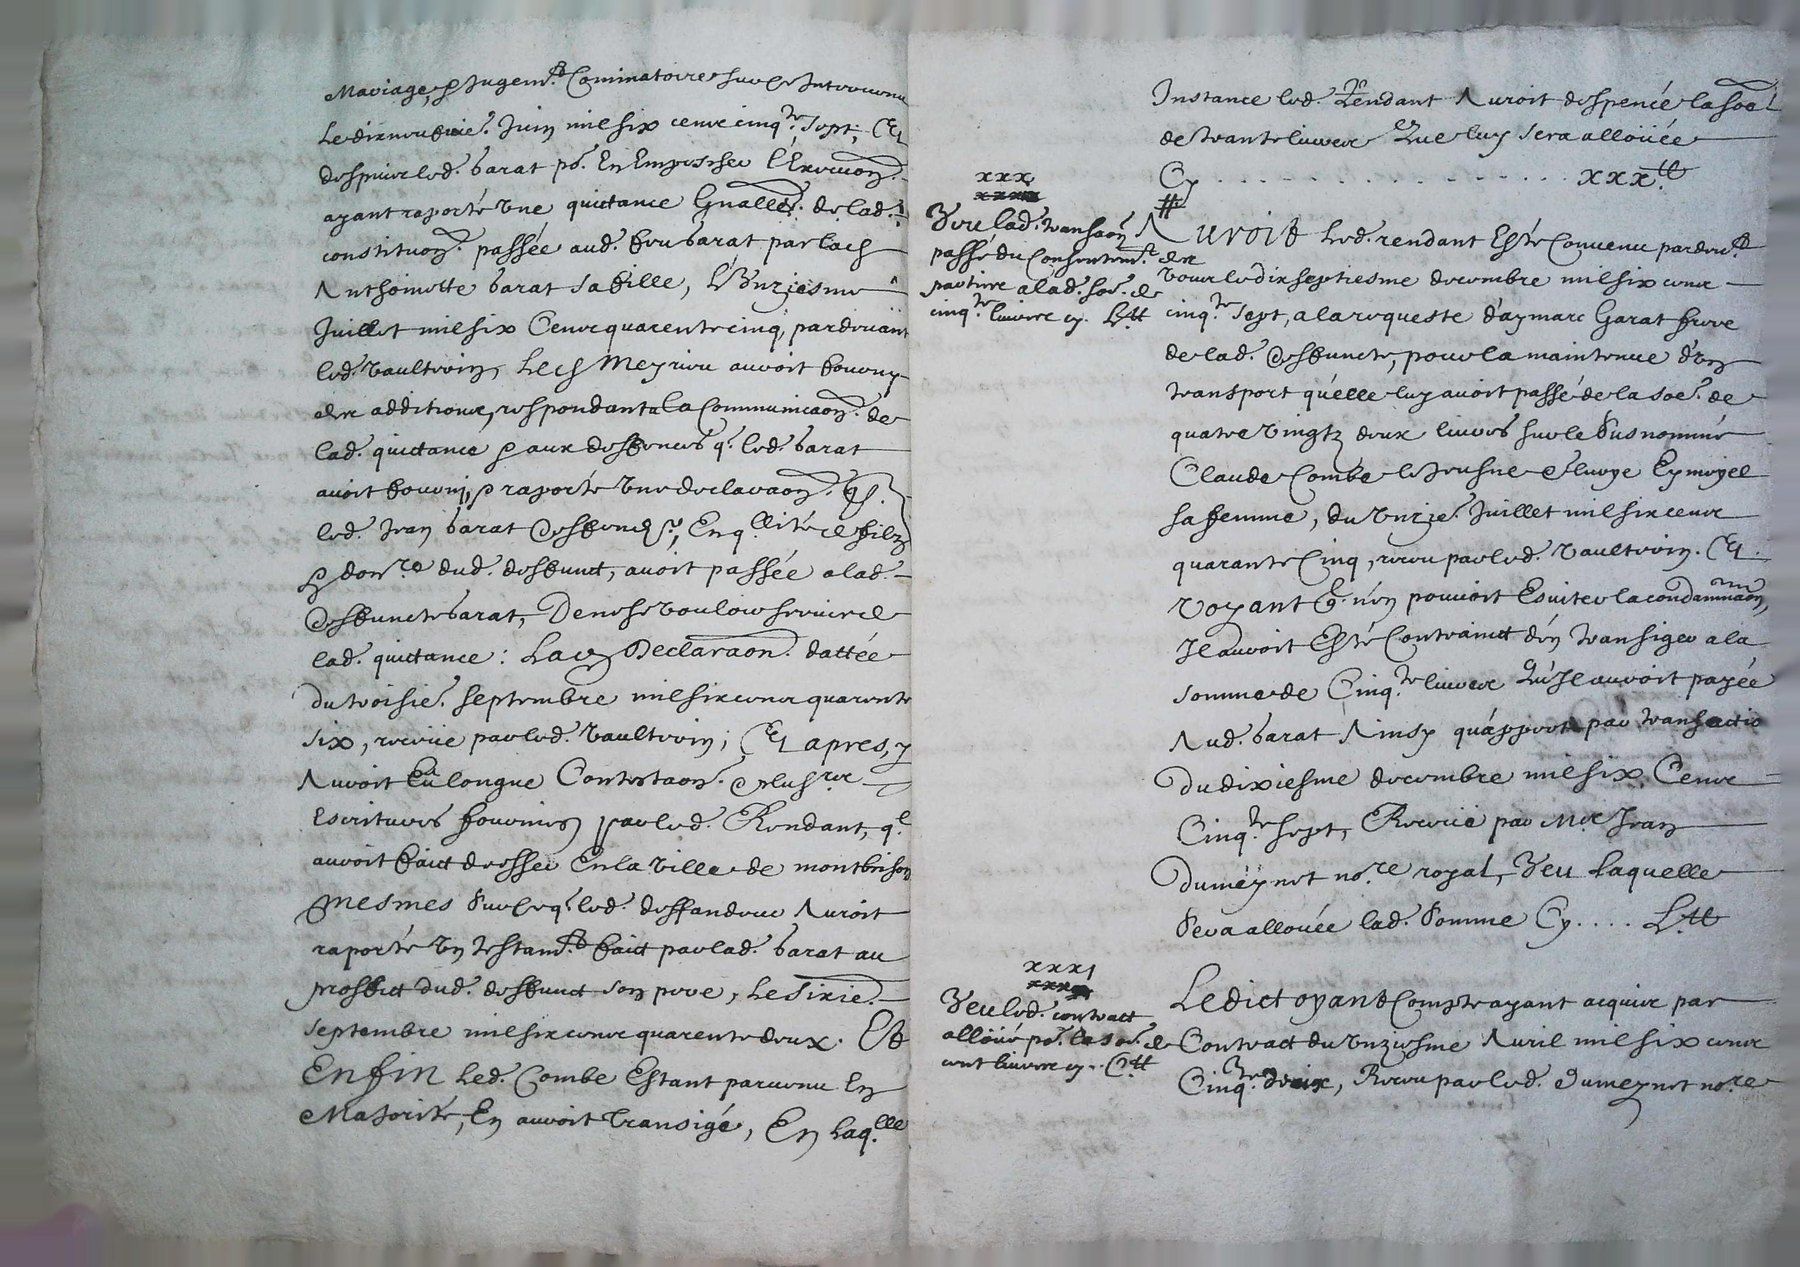 Mariage, & Jugem.t Cominatoire sur ce Intervenu
Le dixneufvie.e Juin mil six cens cinq.te sept, Et
despuis led. barat po.r En Empescher l'Execuon.
ayant raporté Vne quittance Gnalle. de lad.
constituon. passée aud. feu barat par lad.
Anthoinette barat sa fille, L'Vnziesme
Juillet mil six Cens quarente cinq, pardevant
led. Vaultrin, Led. Meyrieu auroit fourny
des additions, respondant a la Communicaon. de
lad. quittance & aux deffences q. led. barat
auoit fourni, & raporté Vne declaraon. q.
led. Jean barat deffend.r, En q.llité de filz
& don.re dud. deffunct, auoit passée a lad.
deffuncte barat, De ne se vouloir seruir de
lad. quittance : Lad. Declaraon. dattée
du troisie. septembre mil six cens quarente
six, receüe par led. Vaultrin ; Et apres, y
Auroit Eu longue Contestaon. & plus.rs
Escritures fournies par led. Rendant, q.l
auroit faict dresser En la Ville de montbrison
Mesmes sur ce q. led. deffandeur Auroit
raporté Vn testam.t faict par lad. barat au
proffict dud. deffunct son pere, Le sixie.
septembre mil six cens quarente deux. Et
Enfin Led. Combe Estant paruenu En
Majorité, En auroit transigé, En laq.lle
Instance led. Rendant Auroit despencé la so.e
de trante liures Que luy sera alloüée
Cy . . . . . . . . . . . . . . . . . . xxx.tt
xxx
Veu lad. transaon
passé du Consentem.t des
parties a lad. so.e de
cinq.te liures cy. L.tt
Auroit Led. rendant Esté Conuenu par deu.t
vous le dixseptiesme decembre mil six cens
cinq.te sept, a la requeste d'aymarc Garat frere
de lad. deffuncte, pour la maintenue d'vn
transport qu'elle luy auoit passé de la so.e de
quatre vingtz deux liures sur le susnommé
Claude Combe le Jeusne & luoye Eymoyel
sa femme, du vnzie. Juillet mil six cens
quarante Cinq, receu par led. Vaultrin. Et
Voyant q. n'en pouuoit Esuiter la condamnaon,
Il auroit Esté Contrainct d'en transiger a la
somme de Cinq.te liures Qu'Il auroit payée
Aud. barat Ainsy qu'appert par transactio
du dixiesme decembre mil six Cens
Cinq.te sept, Receüe par M.re Jean
dumeynet no.re royal, Veu laquelle
sera allouée lad. somme Cy . . . . L.tt
xxxj
Veu led. contract
alloüé po.r la so.e de
cent liures cy . . C.tt
Ledict oyant Compte ayant acquis par
Contract du vnziesme Auril mil six cens
Cinq.te deux, Receu par led. dumeynet no.re